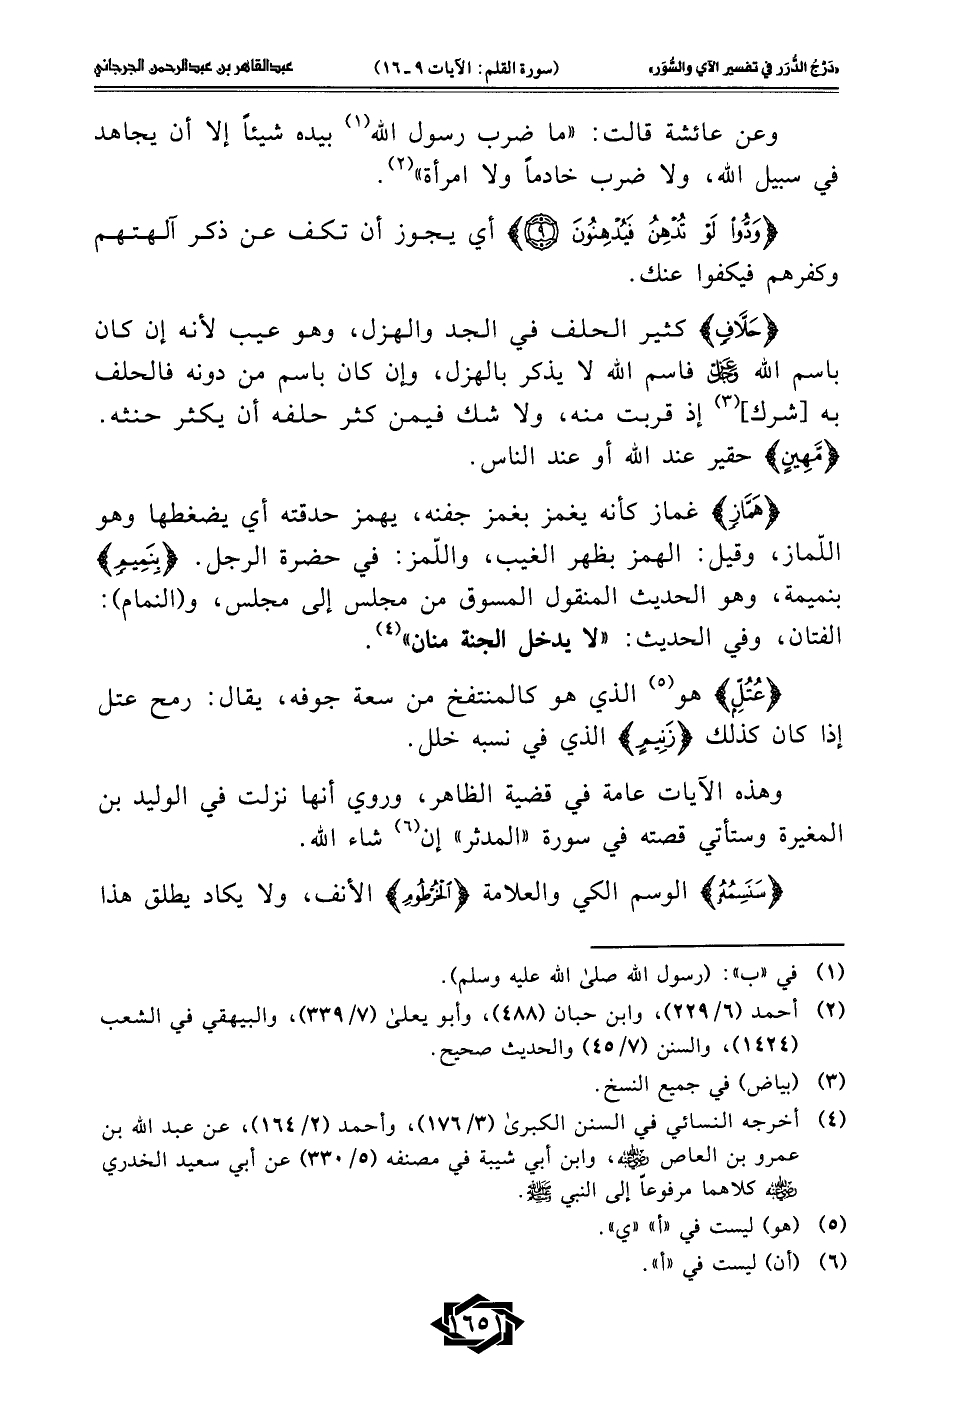 «دَرْجُ الدُّرَر في تفسير الآي والسُّوَر» (سورة القلم: الآيات ٩ ـ ١٦) عبدالقاهر بن عبدالرحمن الجرجاني
وعن عائشة قالت: «ما ضرب رسول الله(١) بيده شيئاً إلا أن يجاهد
في سبيل الله، ولا ضرب خادماً ولا امرأة»(٢).
﴿وَدُّوا۟ لَوْ تُدْهِنُ فَيُدْهِنُونَ ۝٩﴾ أي يجوز أن تكف عن ذكر آلهتهم
وكفرهم فيكفوا عنك.
﴿حَلَّافٍ﴾ كثير الحلف في الجد والهزل، وهو عيب لأنه إن كان
باسم الله ﷻ فاسم الله لا يذكر بالهزل، وإن كان باسم من دونه فالحلف
به [شرك](٣) إذ قربت منه، ولا شك فيمن كثر حلفه أن يكثر حنثه.
﴿مَّهِينٍ﴾ حقير عند الله أو عند الناس.
﴿هَمَّازٍ﴾ غماز كأنه يغمز بغمز جفنه، يهمز حدقته أي يضغطها وهو
اللّماز، وقيل: الهمز بظهر الغيب، واللّمز: في حضرة الرجل. ﴿بِنَمِيمٍ﴾
بنميمة، وهو الحديث المنقول المسوق من مجلس إلى مجلس، و(النمام):
الفتان، وفي الحديث: «لا يدخل الجنة منان»(٤).
﴿عُتُلٍّ﴾ هو(٥) الذي هو كالمنتفخ من سعة جوفه، يقال: رمح عتل
إذا كان كذلك ﴿زَنِيمٍ﴾ الذي في نسبه خلل.
وهذه الآيات عامة في قضية الظاهر، وروي أنها نزلت في الوليد بن
المغيرة وستأتي قصته في سورة «المدثر» إن(٦) شاء الله.
﴿سَنَسِمُهُ﴾ الوسم الكي والعلامة ﴿الْخُرْطُومِ﴾ الأنف، ولا يكاد يطلق هذا
(١) في «ب»: (رسول الله صلىٰ الله عليه وسلم).
(٢) أحمد (٢٢٩/٦)، وابن حبان (٤٨٨)، وأبو يعلىٰ (٣٣٩/٧)، والبيهقي في الشعب
(١٤٢٤)، والسنن (٤٥/٧) والحديث صحيح.
(٣) (بياض) في جميع النسخ.
(٤) أخرجه النسائي في السنن الكبرىٰ (١٧٦/٣)، وأحمد (١٦٤/٢)، عن عبد الله بن
عمرو بن العاص رضي الله عنه، وابن أبي شيبة في مصنفه (٣٣٠/٥) عن أبي سعيد الخدري
رضي الله عنه كلاهما مرفوعاً إلى النبي ﷺ.
(٥) (هو) ليست في «أ» «ي».
(٦) (أن) ليست في «أ».
١٦٥١